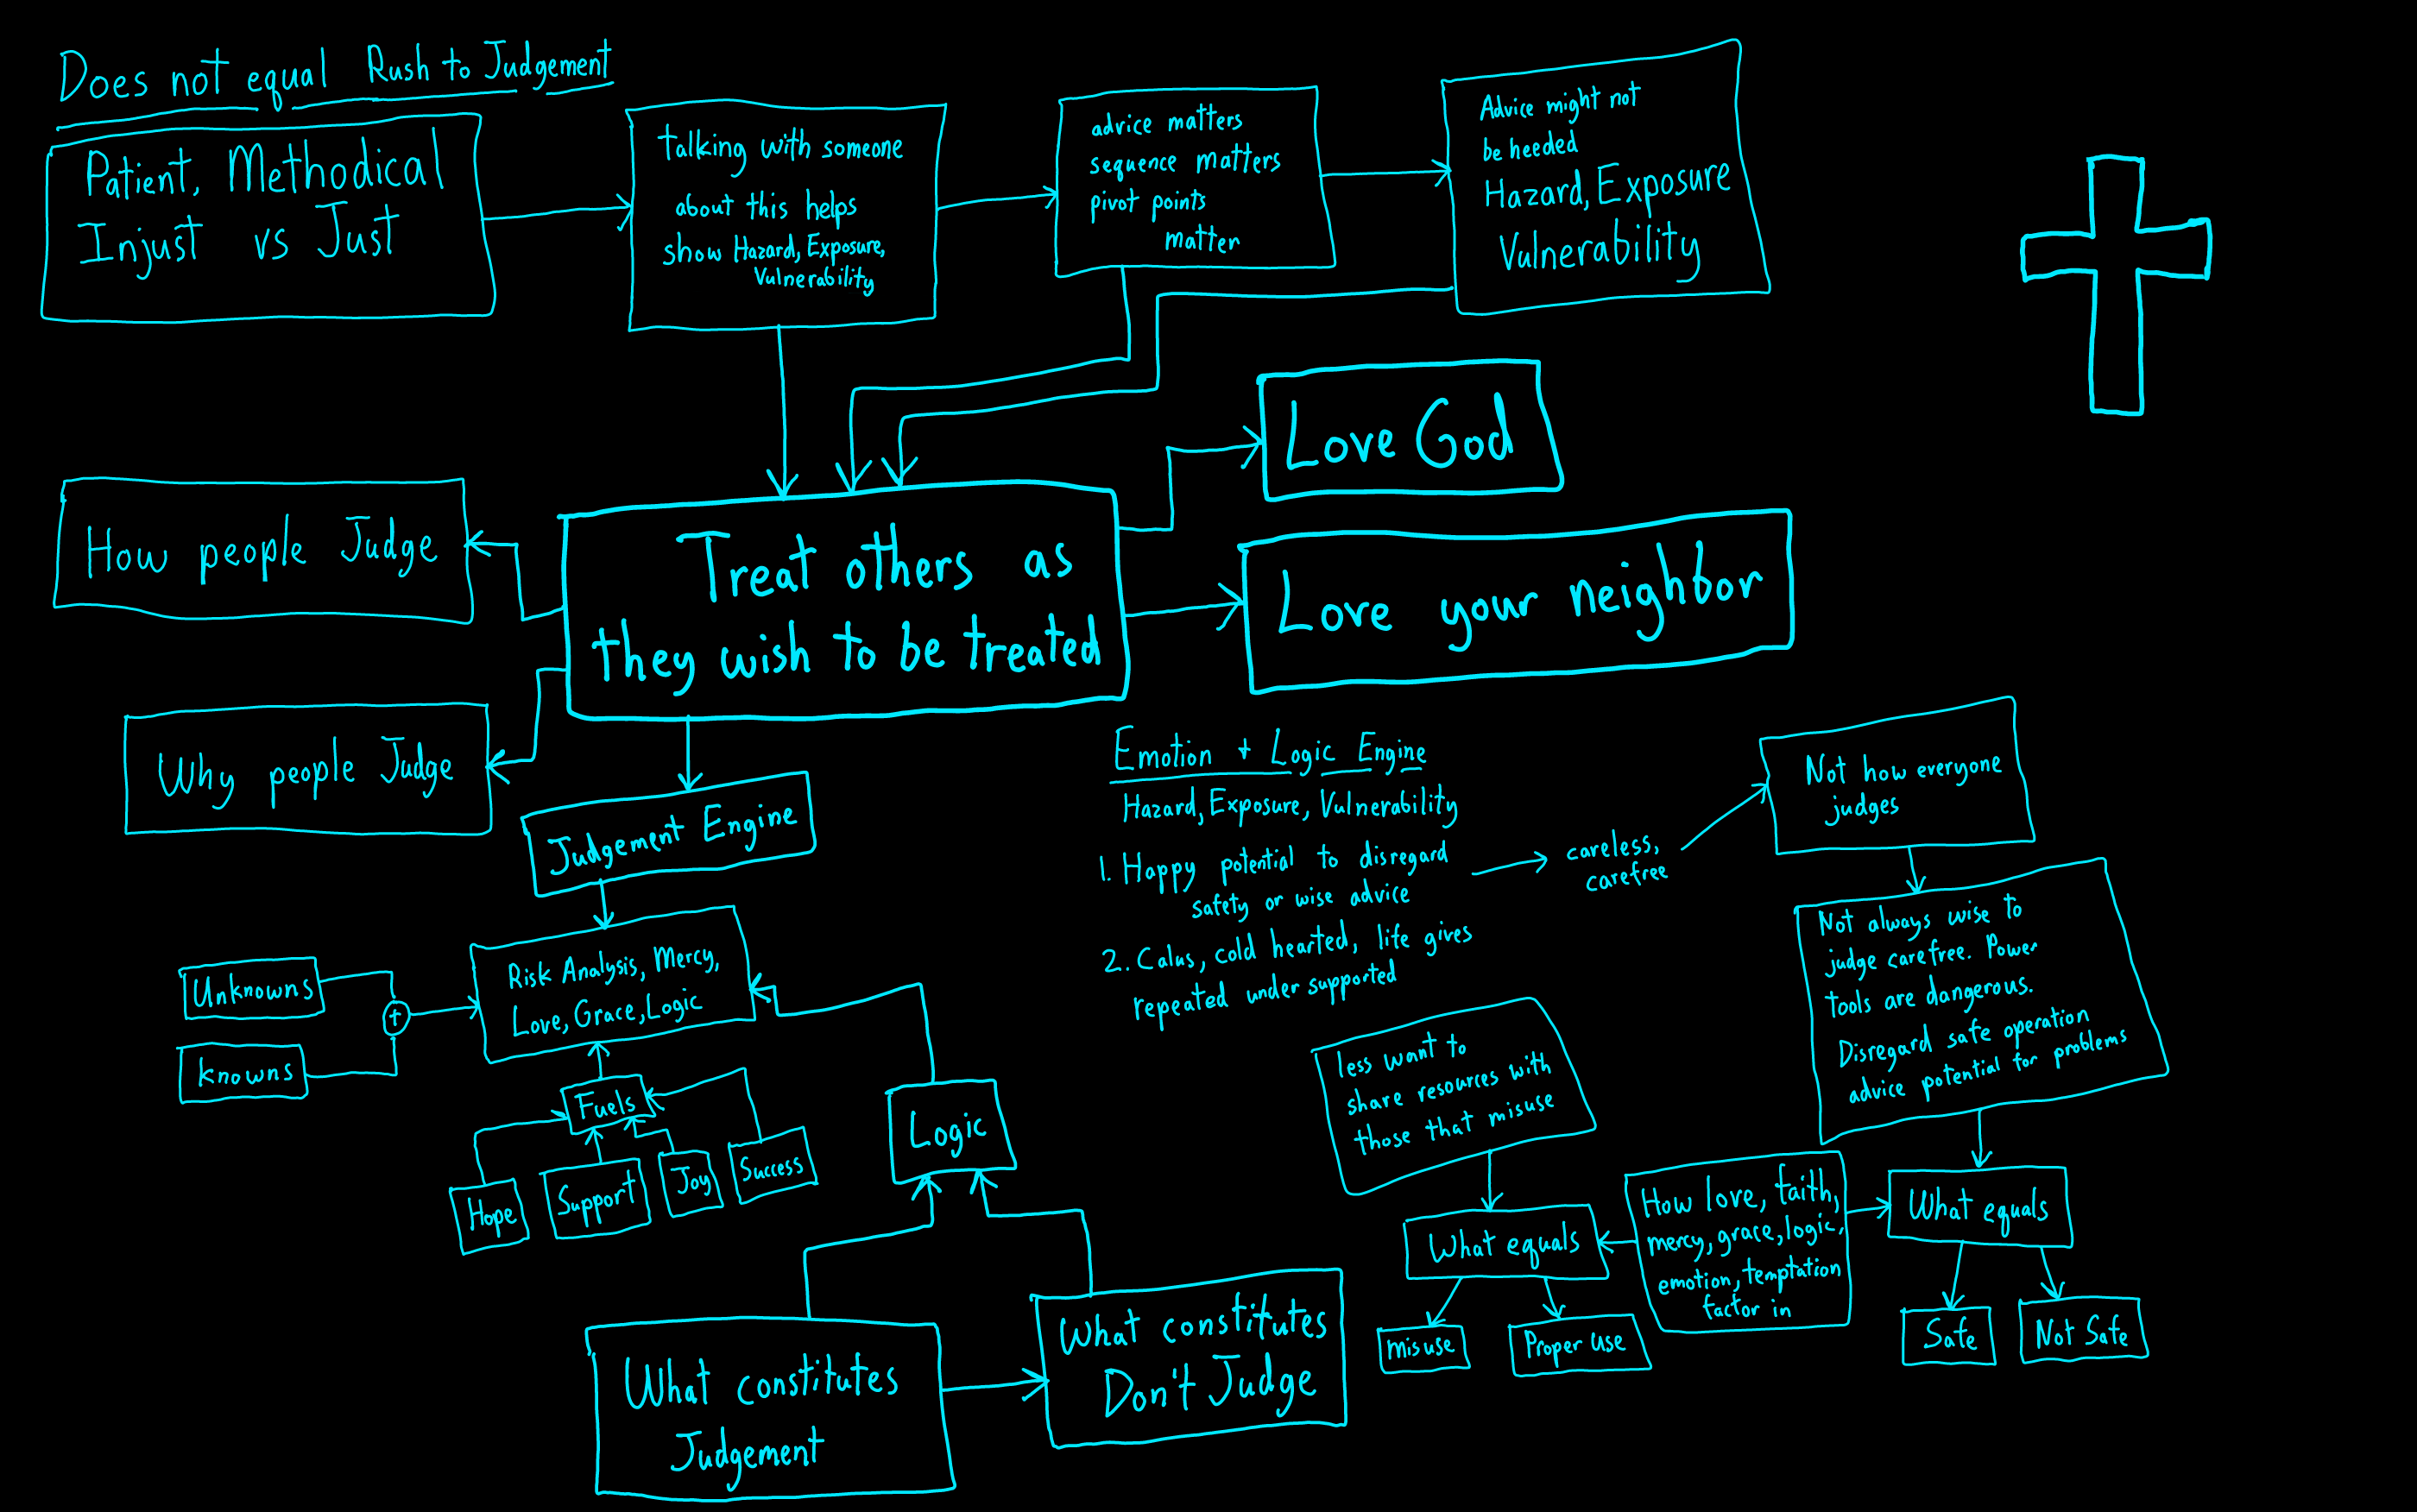 Does not equal Rush to Judgement
Patient, Methodical
Injust vs Just
talking with someone
about this helps
show Hazard, Exposure,
Vulnerability
advice matters
sequence matters
pivot points
matter
Advice might not
be heeded
Hazard, Exposure
Vulnerability
Love God
How people Judge
Treat others as
they wish to be treated
Love your neighbor
Why people Judge
Judgement Engine
Emotion + Logic Engine
Hazard, Exposure, Vulnerability
1. Happy potential to disregard
safety or wise advice
careless,
carefree
2. Calus, cold hearted, life gives
repeated under supported
Not how everyone
judges
Not always wise to
judge carefree. Power
tools are dangerous.
Disregard safe operation
advice potential for problems
Unknowns
+
knowns
Risk Analysis, Mercy,
Love, Grace, Logic
Fuels
Hope
Support
Joy
Success
Logic
less want to
share resources with
those that misuse
What equals
misuse
Proper use
How love, faith,
mercy, grace, logic,
emotion, temptation
factor in
What equals
Safe
Not Safe
What constitutes
Judgement
What constitutes
Don't Judge